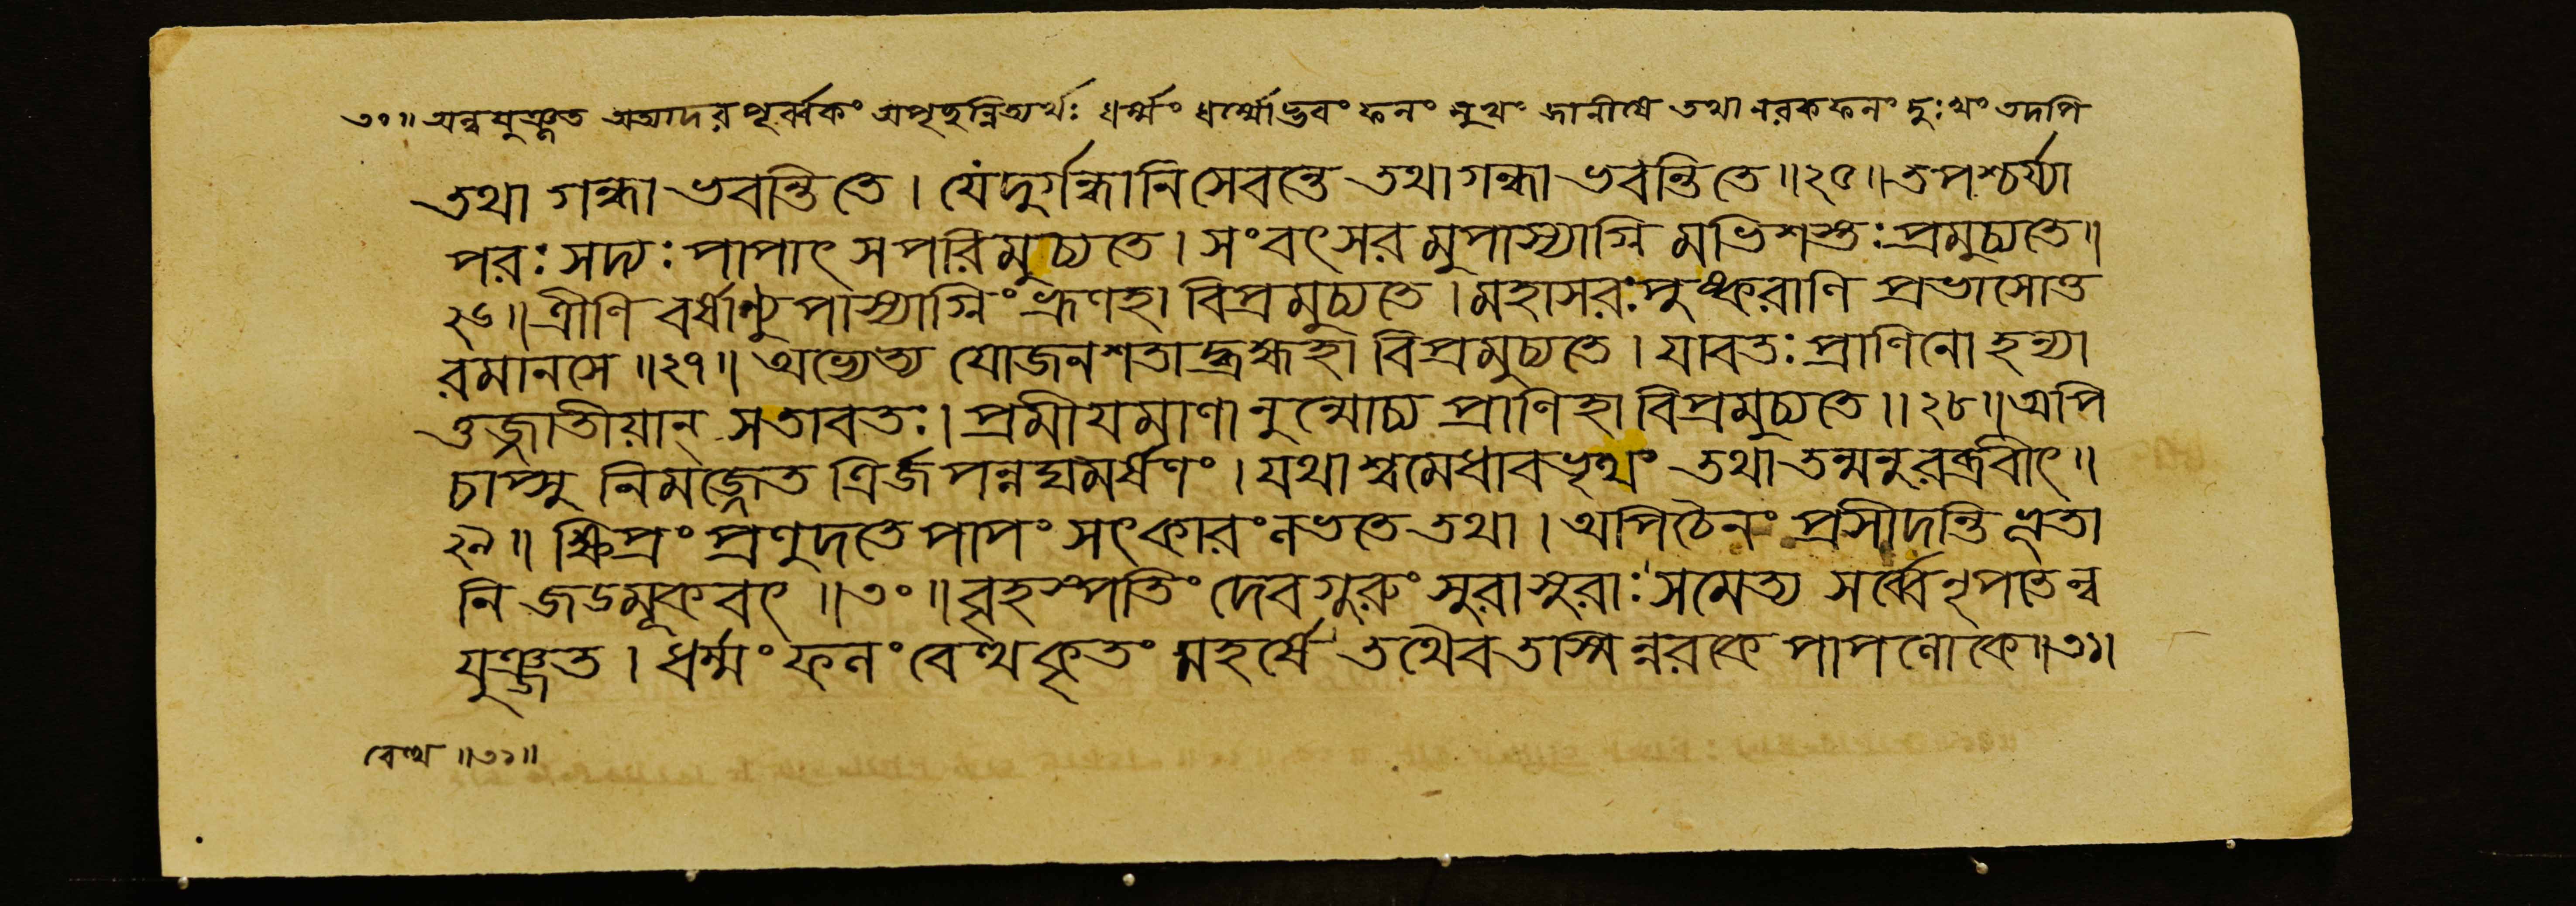 ৩০॥ অন্বযুঞ্জত অত্যাদরপূর্ব্বকং অপৃচ্ছন্নিত্যর্থঃ ধর্ম্মং ধর্ম্মোদ্ভবং ফলং সুখং জানীষে তথা নরকফলং দুঃখং তদপি
তথা গন্ধা ভবন্তিতে । যেদুর্গন্ধানিসেবন্তে তথাগন্ধা ভবন্তিতে ॥২৫॥ তপশ্চর্য্যা
পরঃ সদ্যঃ পাপাৎ সপরিমুচ্যতে । সংবৎসরমুপাস্যাগ্নি মভিশস্তঃ প্রমুচ্যতে ॥
২৬॥ ত্রীণি বর্ষাণ্যুপাস্যাগ্নিং ভ্রূণহা বিপ্রমুচ্যতে । মহাসরঃ পুষ্করাণি প্রভাসোত্ত
রমানসে ॥২৭॥ অভ্যেত্য যোজনশতাদ্ভ্রূণহা বিপ্রমুচ্যতে । যাবতঃ প্রাণিনো হন্যা
ত্তজ্জাতীয়ান্ সতাবতঃ । প্রমীযমাণানুন্মোচ্য প্রাণিহা বিপ্রমুচ্যতে ॥২৮॥ অপি
চাপ্সু নিমজ্জেত ত্রির্জপন্নঘমর্ষণং । যথাশ্বমেধাবভৃথং তথা তন্মনুরব্রবীৎ ॥
২৯॥ ক্ষিপ্রং প্রণুদতে পাপং সৎকারং লভতে তথা । অপিচৈনং প্রসীদন্তি ভূতা
নি জডমূকবৎ ॥৩০॥ বৃহস্পতিং দেবগুরুং সুরাসুরাঃ সমেত্য সর্ব্বে নৃপতেন্ব
যুঞ্জত । ধর্ম্মং ফলং বেত্থ কৃতং মহর্ষে তথৈবতস্মিন্নরকে পাপলোকে ॥৩১।
বেত্থ ॥৩১॥